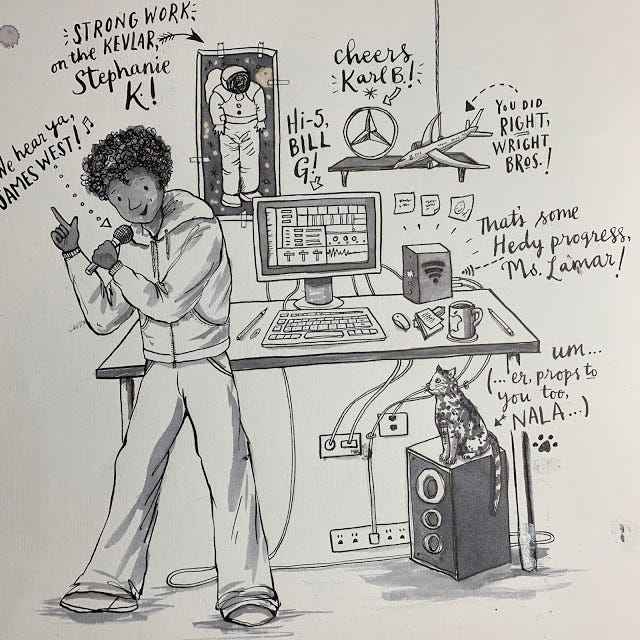 STRONG WORK
on the KEVLAR,
Stephanie
K!
We hear ya,
JAMES WEST!
Hi-5,
BILL
G!
cheers,
Karl B.!
YOU DID
RIGHT,
WRIGHT
BROS.!
That's some
Hedy progress,
Ms. Lamar!
um...
(...er, props to
you too,
NALA...)